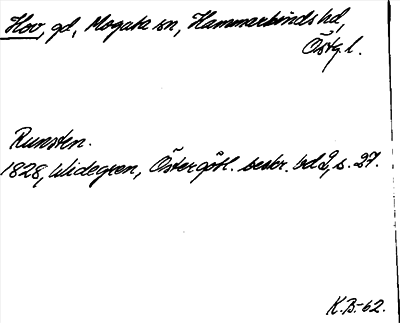 Hov, gd, Mogata sn, Hammarkinds hd,
Östg. l.
Runsten.
1828, Widegren, Östergötl. beskr. bd 2, s. 27.
K.B.-62.